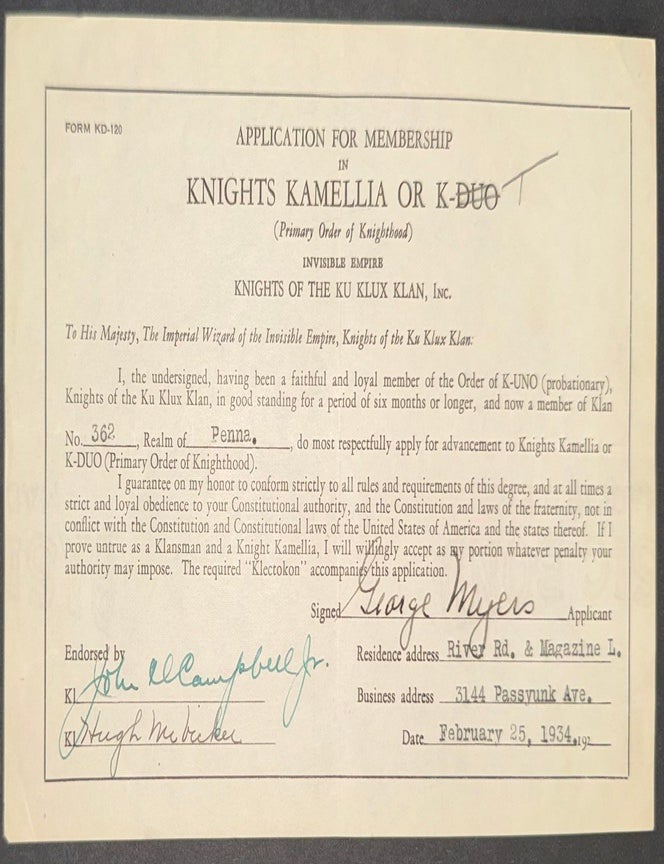 FORM KD-120
APPLICATION FOR MEMBERSHIP
IN
KNIGHTS KAMELLIA OR K-DUO T
(Primary Order of Knighthood)
INVISIBLE EMPIRE
KNIGHTS OF THE KU KLUX KLAN, INC.
To His Majesty, The Imperial Wizard of the Invisible Empire, Knights of the Ku Klux Klan:
I, the undersigned, having been a faithful and loyal member of the Order of K-UNO (probationary),
Knights of the Ku Klux Klan, in good standing for a period of six months or longer, and now a member of Klan
No. 362, Realm of Penna., do most respectfully apply for advancement to Knights Kamellia or
K-DUO (Primary Order of Knighthood).
I guarantee on my honor to conform strictly to all rules and requirements of this degree, and at all times a
strict and loyal obedience to your Constitutional authority, and the Constitution and laws of the fraternity, not in
conflict with the Constitution and Constitutional laws of the United States of America and the states thereof. If I
prove untrue as a Klansman and a Knight Kamellia, I will willingly accept as my portion whatever penalty your
authority may impose. The required "Klectokon" accompanies this application.
Signed George Myers Applicant
Endorsed by
Residence address River Rd. & Magazine L.
Kl. John Campbell Jr.
Business address 3144 Passyunk Ave.
Kl. Hugh
Date February 25, 1934. 192